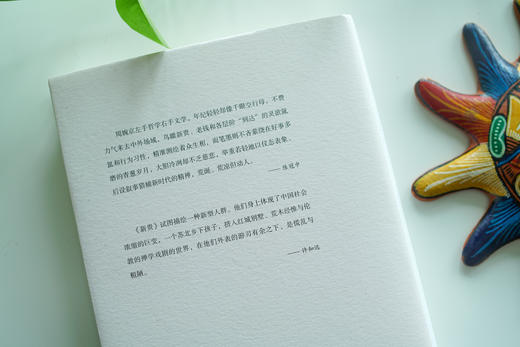 周婉京左手哲学右手文学。年纪轻轻却像千眼空行母，不费
力气来去中外场域，鸟瞰新贵、老钱和各层阶“到达”的灵欲氤
氲和行为习性，精准测绘着众生相。而笔墨则不吝萦绕在好事多
磨的青葱岁月，大胆冷冽却不乏慈悲，举重若轻地以仪态表象、
后设叙事猎捕新时代的精神，荒诞、荒凉但动人。
——陈冠中
《新贵》试图描绘一种新型人群。他们身上体现了中国社会
浓缩的巨变，一个苏北乡下孩子，挤入红城别墅、荒木经惟与伦
敦的禅学戏剧的世界，在他们外表的游刃有余之下，是慌乱与
粗陋。
——许知远